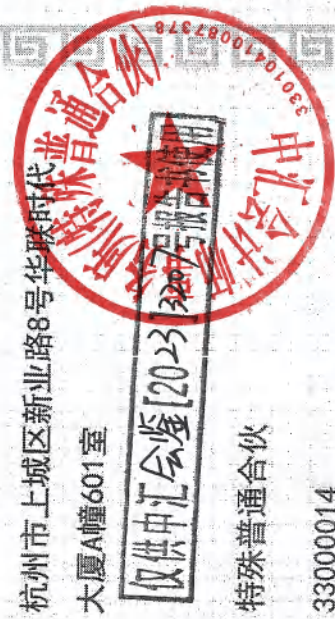 杭州市上城区新业路8号华联时代
大厦A幢601室
仅供中汇会鉴[2023]3207号报告书使用
特殊普通合伙
33000014
中汇会计师事务所(特殊普通合伙)
33010410087378